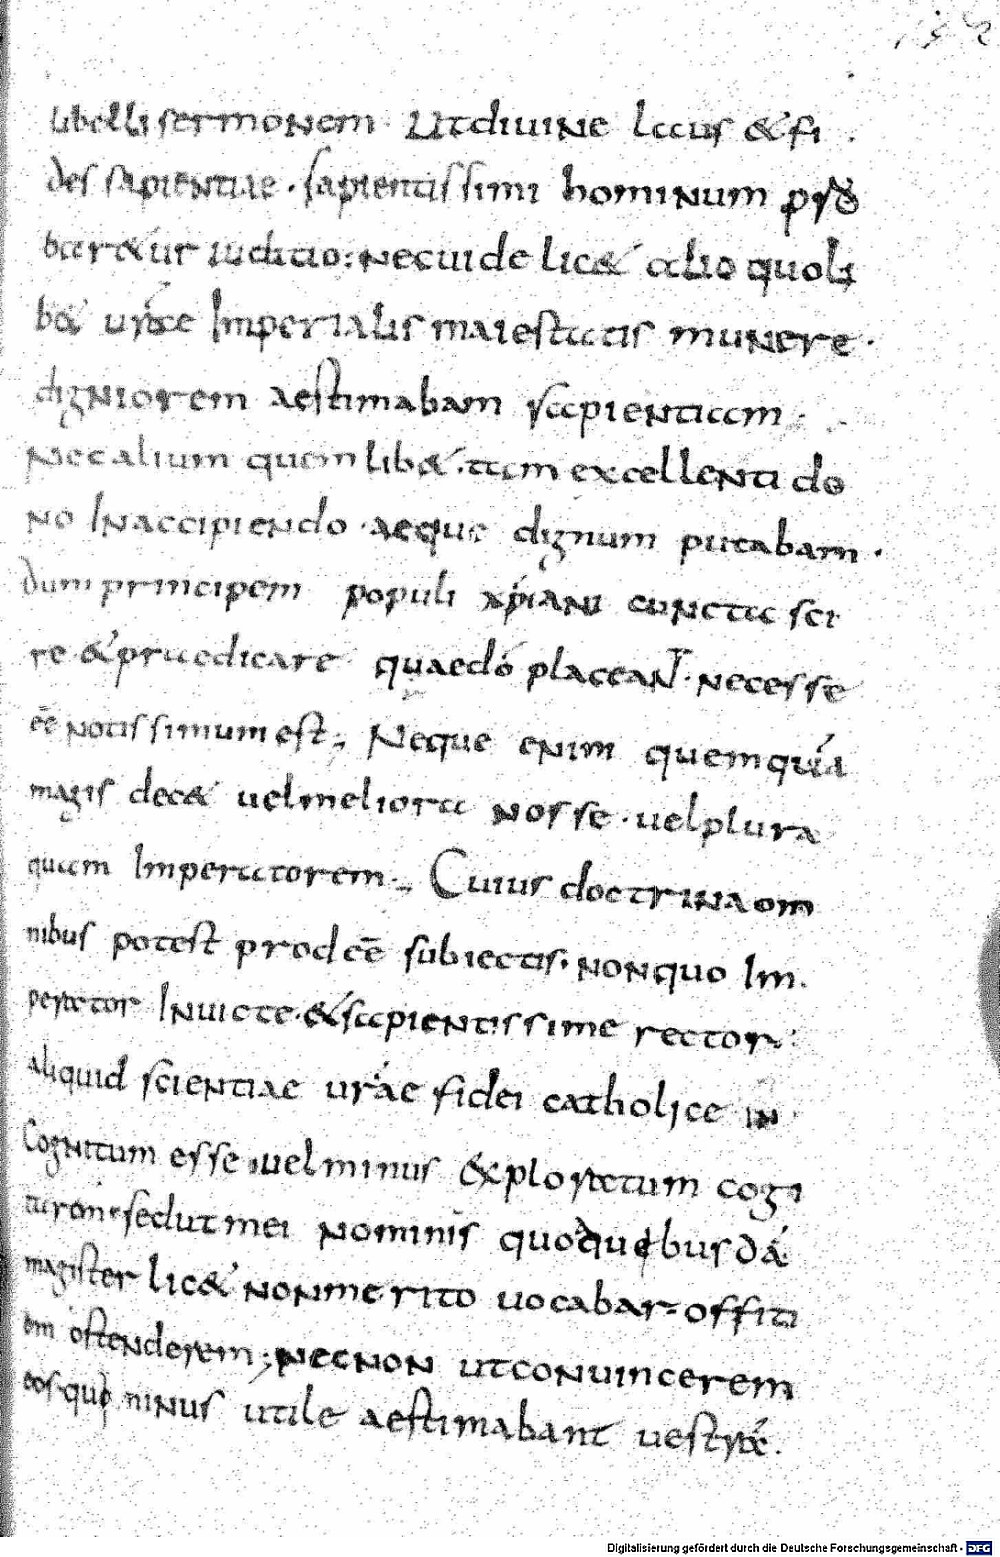 libelli sermonem. Ut divine laus & fi
des sapientiae. sapientissimi hominum
bar&ur iuditio; nec vide lic& alio quoli
b& urae Imperialis maiestatis munere.
digniorem aestimabam sapientiam.
Nec alium quemlib&. tam excellenti do
no In accipiendo. aeque dignum putabam.
dum principem populi xpiani cuncta sci
re & praedicare quae dō placeant. necesse
eē notissimum est; Neque enim quemquā
magis dec& vel meliora nosse. vel plura
quam Imperatorem; Cuius doctrina om
nibus potest prodeē subiectis. non quo Im
perator Invicte. & sapientissime rector
aliquid scientiae urae fidei catholice in
cognitum esse. vel minus exploratum cogi
sed ut mei nominis quo a quibusdā
magister lic& non merito vocabar. offiti
ostenderem; necnon ut convincerem
eos. qui minus utile aestimabant vestrae.
Digitalisierung gefördert durch die Deutsche Forschungsgemeinschaft - DFG